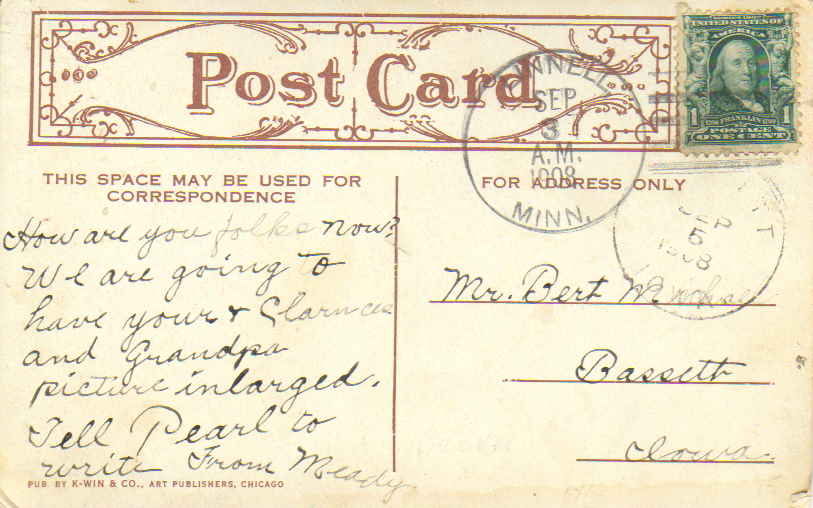 Post Card
NNELL
SEP
3
A.M.
1908
MINN.
UNITED STATES OF
AMERICA
1 FRANKLIN 1
POSTAGE
ONE CENT
THIS SPACE MAY BE USED FOR
CORRESPONDENCE
FOR ADDRESS ONLY
SEP
5
1908
How are you folks now?
We are going to
have your & Clarnces
and Grandpa
picture inlarged.
Tell Pearl to
write From Meady
Mr. Bert
Bassett
Iowa.
PUB. BY K-WIN & CO., ART PUBLISHERS, CHICAGO